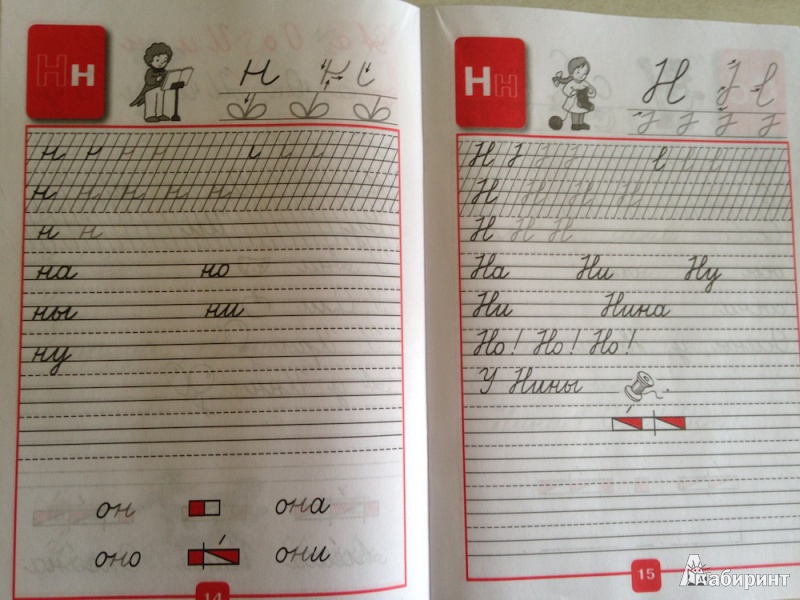 Н н
н
н н н н и и и
н н н н н
н н
на но
ны ни
ну
он она
оно они
14
Н н
Н
Н
Н Н Н Н
Н Н Н
На Ни Ну
Ни Нина
Но! Но! Но!
У Нины
15
Лабиринт